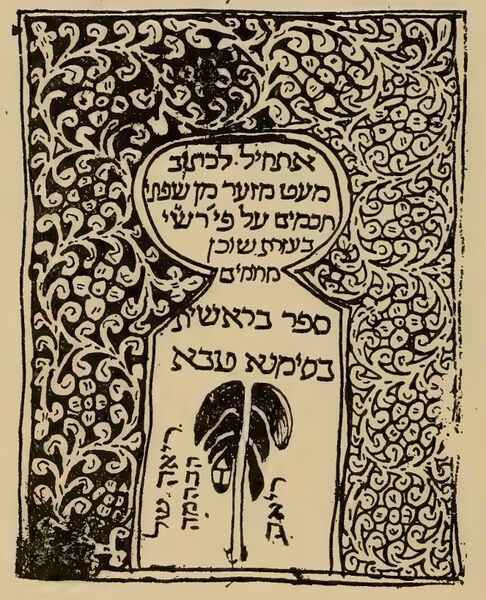 אתחיל לכתוב
מעט מזער מן שפתי
חכמים על פי רש״י
בעזרת שוכן
מרומים
ספר בראשית
בסימנא טבא
ריאה של
הבהמה